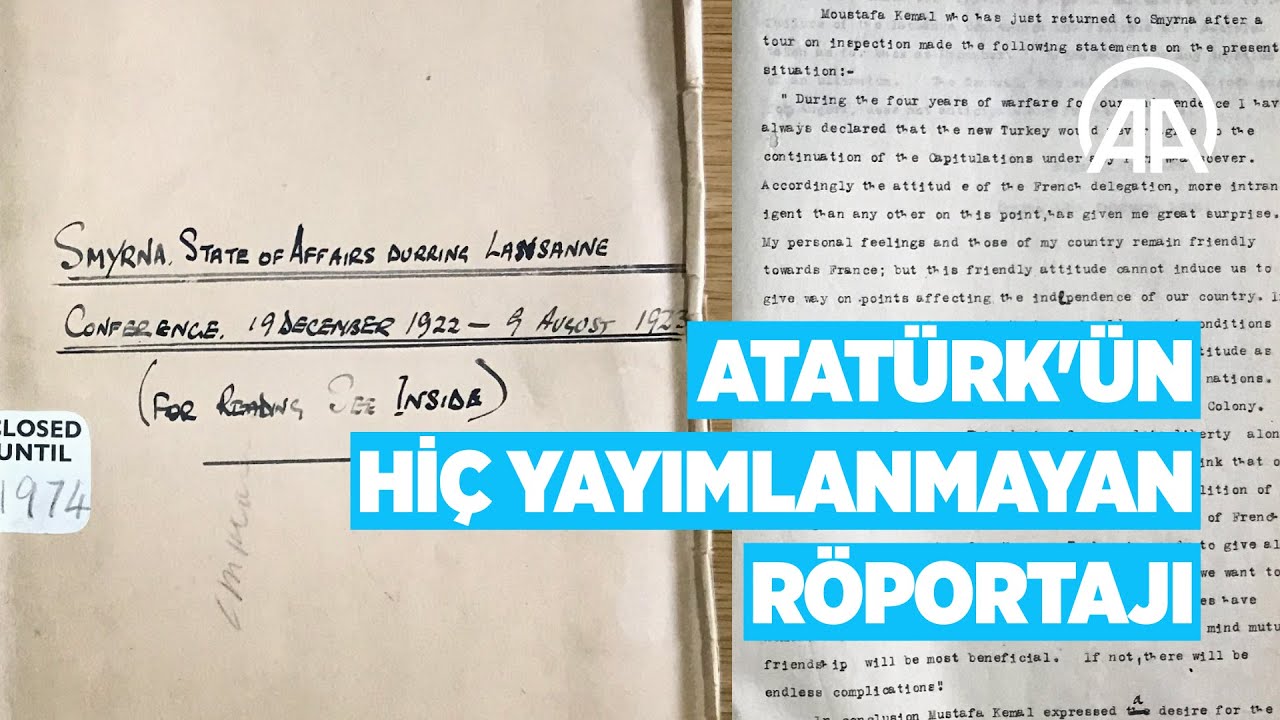 SMYRNA. STATE OF AFFAIRS DURRING LAUSANNE
CONFERENCE. 19 DECEMBER 1922 – 9 AUGUST 1923
(FOR READING SEE INSIDE)
CLOSED
UNTIL
1974
Moustafa Kemal who has just returned to Smyrna after a
tour on inspection made the following statements on the present
situation:-
" During the four years of warfare for our I hav
always declared that the new Turkey would to the
continuation of the Capitulations under
Accordingly the attitud e of the French delegation, more intran
igent than any other on this point,has given me great surprise.
My personal feelings and those of my country remain friendly
towards France; but this friendly attitude cannot induce us to
give way on points affecting the independence of our country. I
onditions
titude as
nations.
Colony.
erty alon
ink that o
lition of
of Frenc
to give al
we want to
es have
mind mutu
friendship will be most beneficial. If not,there will be
endless complications"
In conclusion Mustafa Kemal expressed a desire for the
AA
ATATÜRK'ÜN
HİÇ YAYIMLANMAYAN
RÖPORTAJI